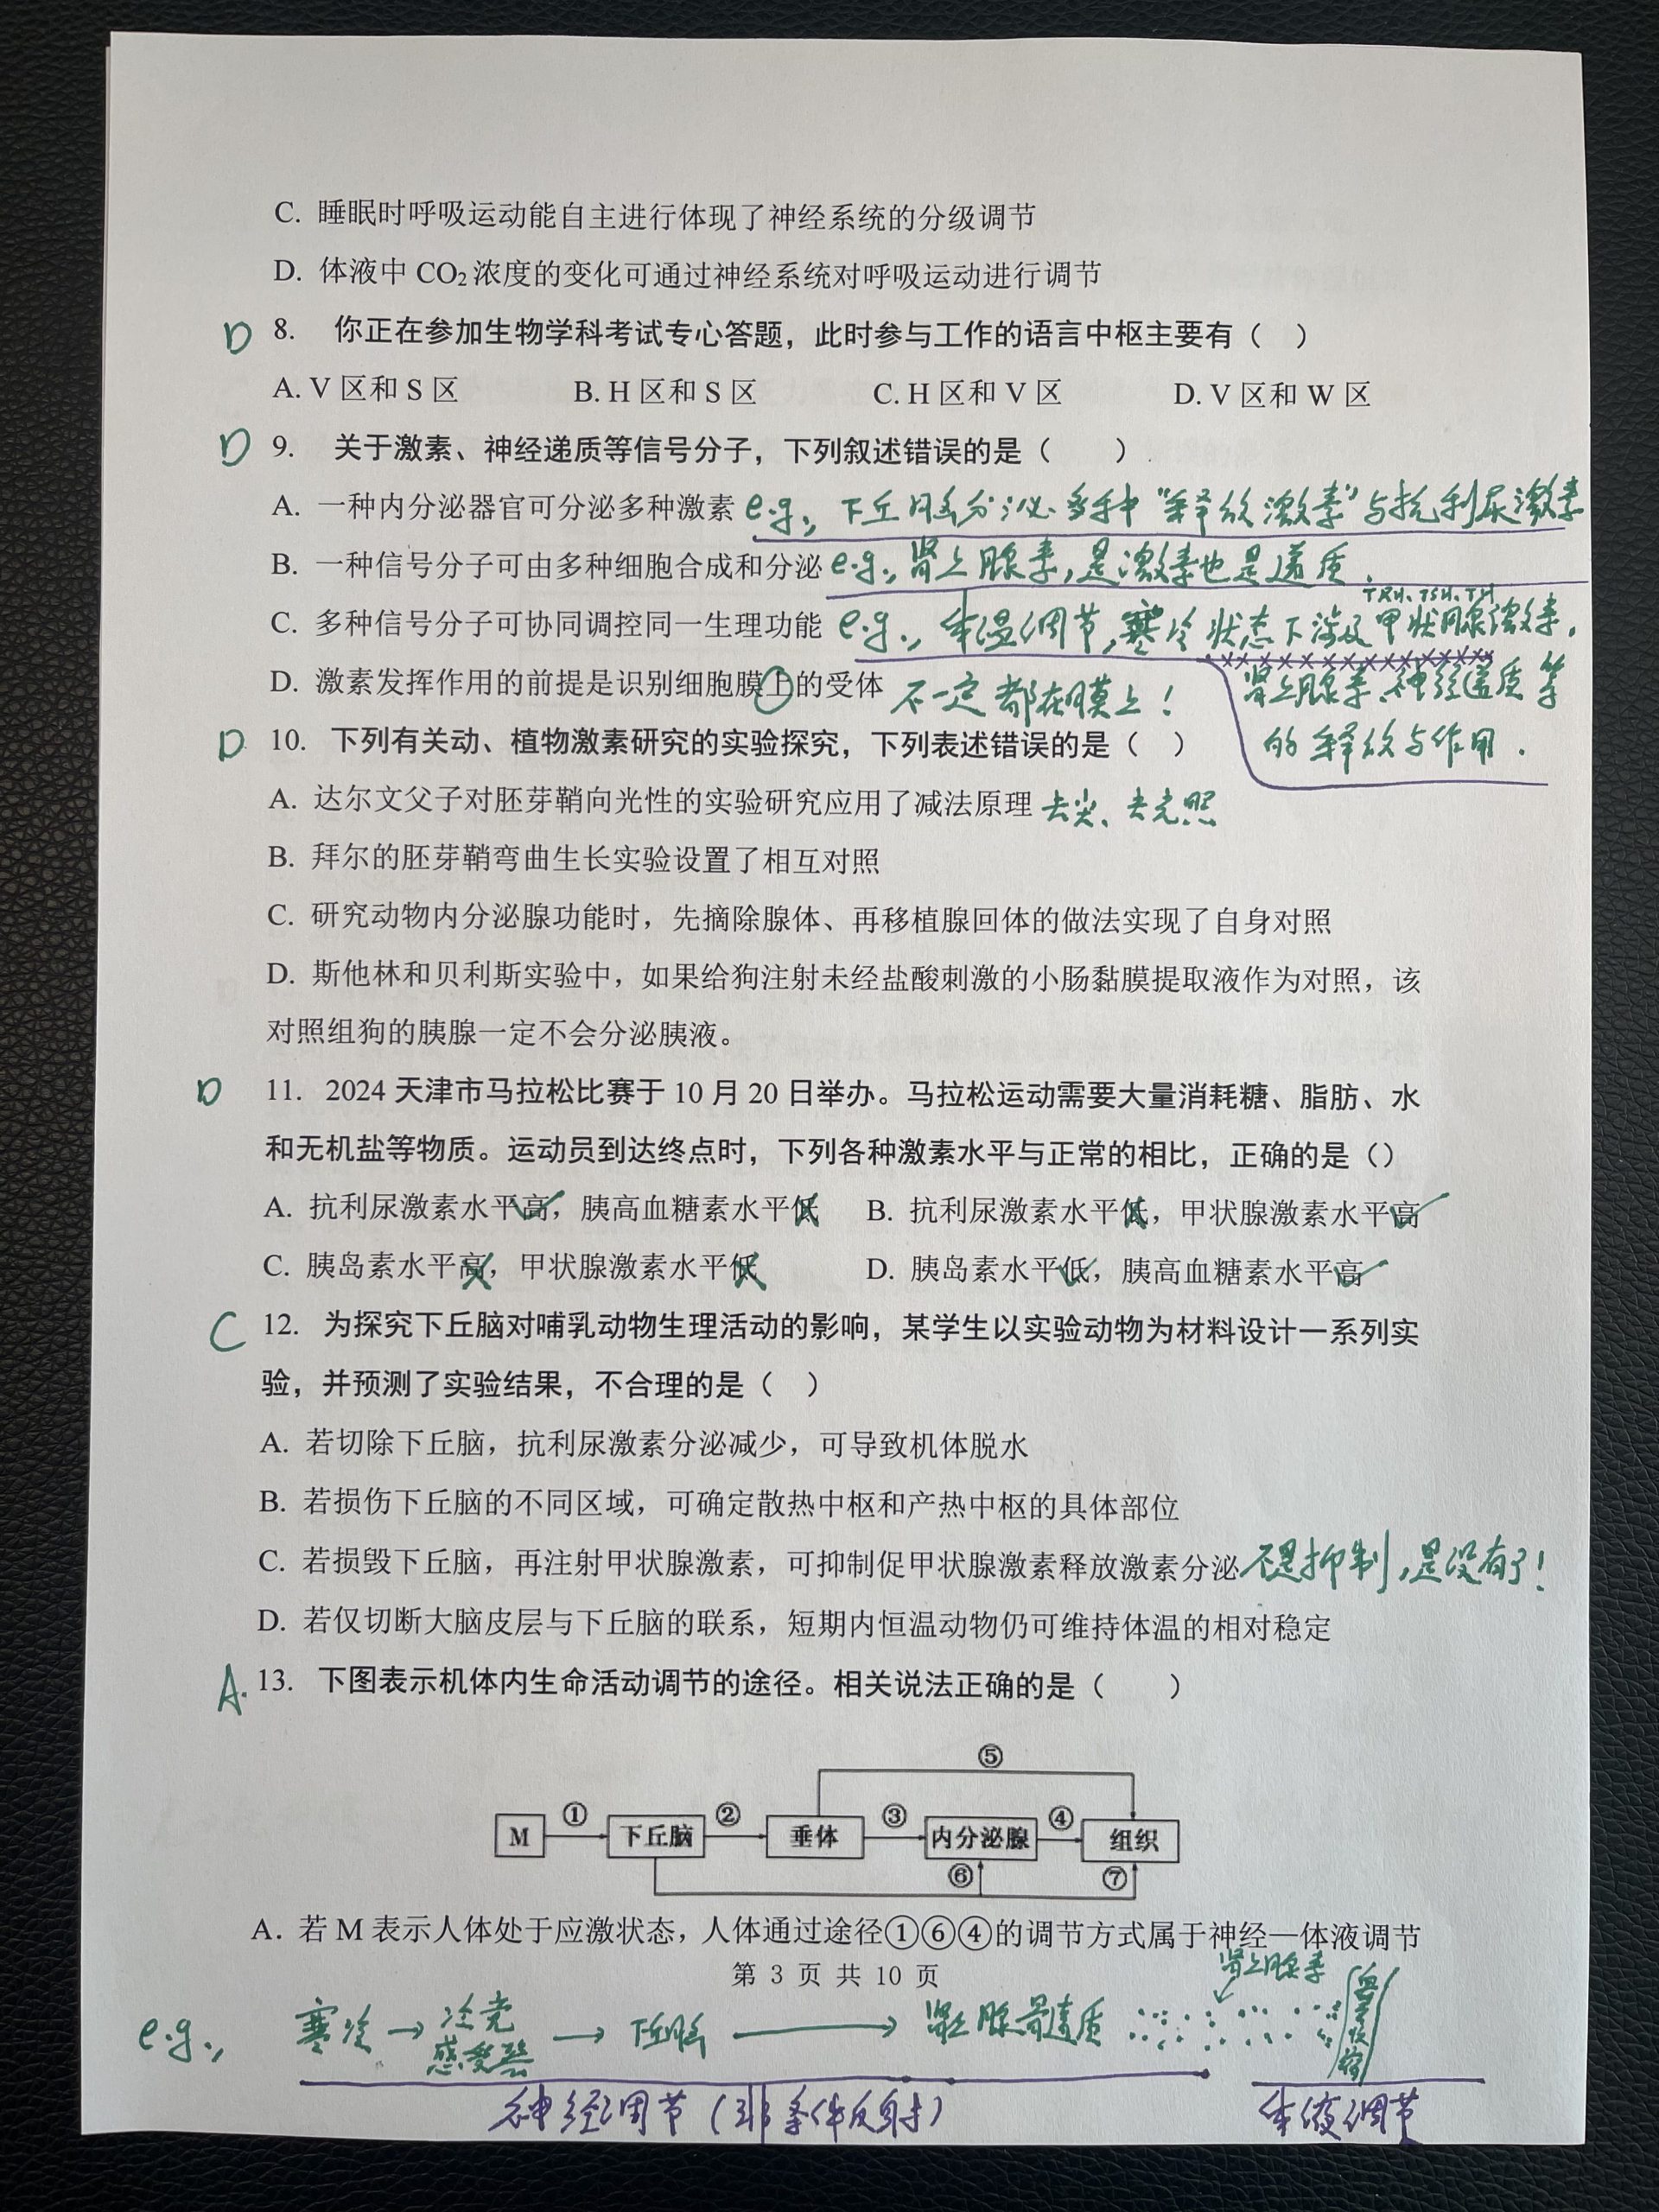 C. 睡眠时呼吸运动能自主进行体现了神经系统的分级调节
D. 体液中 CO₂ 浓度的变化可通过神经系统对呼吸运动进行调节
D 8. 你正在参加生物学科考试专心答题，此时参与工作的语言中枢主要有（ ）
A. V 区和 S 区 B. H 区和 S 区 C. H 区和 V 区 D. V 区和 W 区
D 9. 关于激素、神经递质等信号分子，下列叙述错误的是（ ）
A. 一种内分泌器官可分泌多种激素 e.g., 下丘脑分泌多种“释放激素”与抗利尿激素
B. 一种信号分子可由多种细胞合成和分泌 e.g., 肾上腺素，是激素也是递质.
TRH、TSH、TH
C. 多种信号分子可协同调控同一生理功能 e.g., 体温调节，寒冷状态下涉及甲状腺激素，
D. 激素发挥作用的前提是识别细胞膜上的受体 不一定都在膜上！ 肾上腺素、神经递质等
的释放与作用.
D 10. 下列有关动、植物激素研究的实验探究，下列表述错误的是（ ）
A. 达尔文父子对胚芽鞘向光性的实验研究应用了减法原理 去尖、去光照
B. 拜尔的胚芽鞘弯曲生长实验设置了相互对照
C. 研究动物内分泌腺功能时，先摘除腺体、再移植腺回体的做法实现了自身对照
D. 斯他林和贝利斯实验中，如果给狗注射未经盐酸刺激的小肠黏膜提取液作为对照，该
对照组狗的胰腺一定不会分泌胰液。
D 11. 2024 天津市马拉松比赛于 10 月 20 日举办。马拉松运动需要大量消耗糖、脂肪、水
和无机盐等物质。运动员到达终点时，下列各种激素水平与正常的相比，正确的是（）
A. 抗利尿激素水平高，胰高血糖素水平低 B. 抗利尿激素水平低，甲状腺激素水平高
C. 胰岛素水平高，甲状腺激素水平低 D. 胰岛素水平低，胰高血糖素水平高
C 12. 为探究下丘脑对哺乳动物生理活动的影响，某学生以实验动物为材料设计一系列实
验，并预测了实验结果，不合理的是（ ）
A. 若切除下丘脑，抗利尿激素分泌减少，可导致机体脱水
B. 若损伤下丘脑的不同区域，可确定散热中枢和产热中枢的具体部位
C. 若损毁下丘脑，再注射甲状腺激素，可抑制促甲状腺激素释放激素分泌 不是抑制，是没有了！
D. 若仅切断大脑皮层与下丘脑的联系，短期内恒温动物仍可维持体温的相对稳定
A. 13. 下图表示机体内生命活动调节的途径。相关说法正确的是（ ）
⑤
M ① 下丘脑 ② 垂体 ③ 内分泌腺 ④ 组织
⑥ ⑦
A. 若 M 表示人体处于应激状态，人体通过途径①⑥④的调节方式属于神经—体液调节
第 3 页 共 10 页
肾上腺素
e.g., 寒冷 → 冷觉感受器 → 下丘脑 → 肾上腺髓质
神经调节（非条件反射） 体液调节